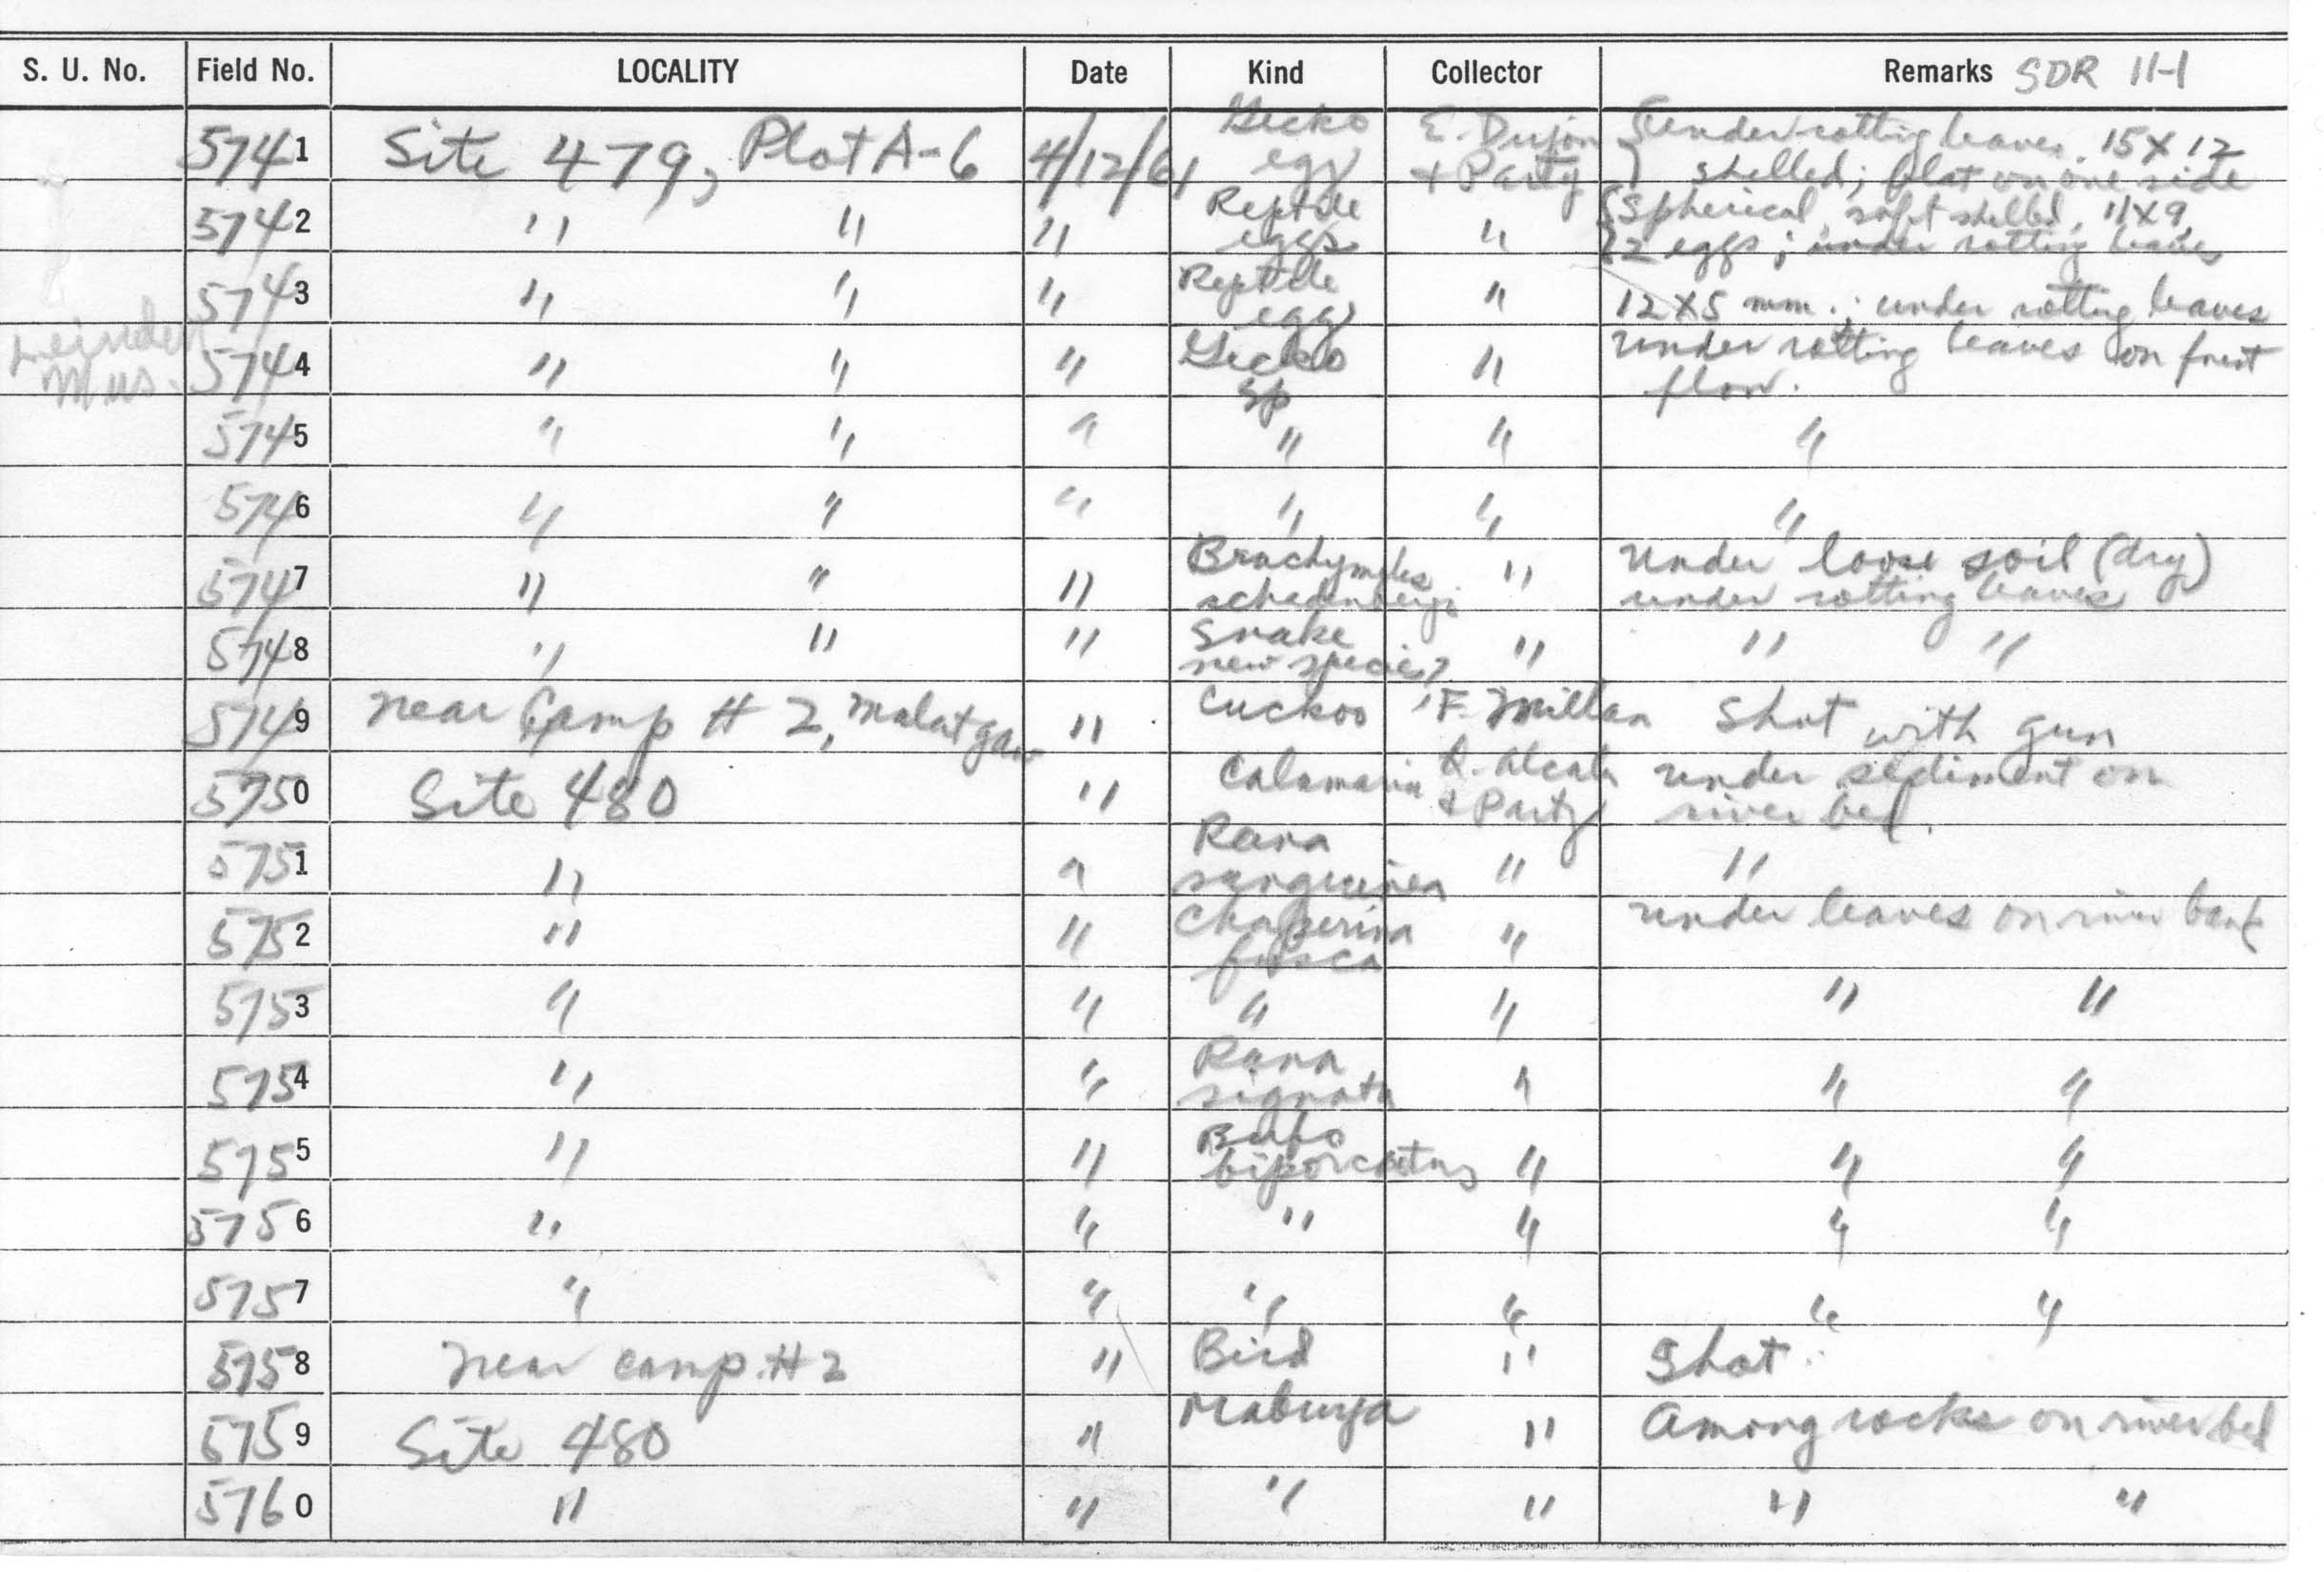 S. U. No. Field No. LOCALITY Date Kind Collector Remarks SDR 11-1
5741 Site 479, Plot A-6 4/12/61 Gecko egg E. Dujon & Party { under rotting leaves. 15 X 12 shelled; flat on one side
5742 " " " Reptile eggs " { Spherical, soft shelled, 11 X 9, 2 eggs; under rotting leaves
5743 " " " Reptile egg " 12 X 5 mm.; under rotting leaves
Mus. 5744 " " " Gecko sp " under rotting leaves on forest floor.
5745 " " " " " "
5746 " " " " " "
5747 " " " Brachymeles schadenbergi " Under loose soil (dry) under rotting leaves
5748 " " " Snake new species? " " "
5749 near Camp # 2, Malatgaw " Cuckoo F. Millan Shot with gun
5750 Site 480 " Calamaria Q. Alcala & Party under sediment on river bed.
5751 " " Rana sanguinea " "
5752 " " Chaperina fusca " under leaves on river bank
5753 " " " " " "
5754 " " Rana signata " " "
5755 " " Bufo biporcatus " " "
5756 " " " " " "
5757 " " " " " "
5758 near camp # 2 " Bird " Shot
5759 Site 480 " Mabuya " Among rocks on river bed
5760 " " " " " "